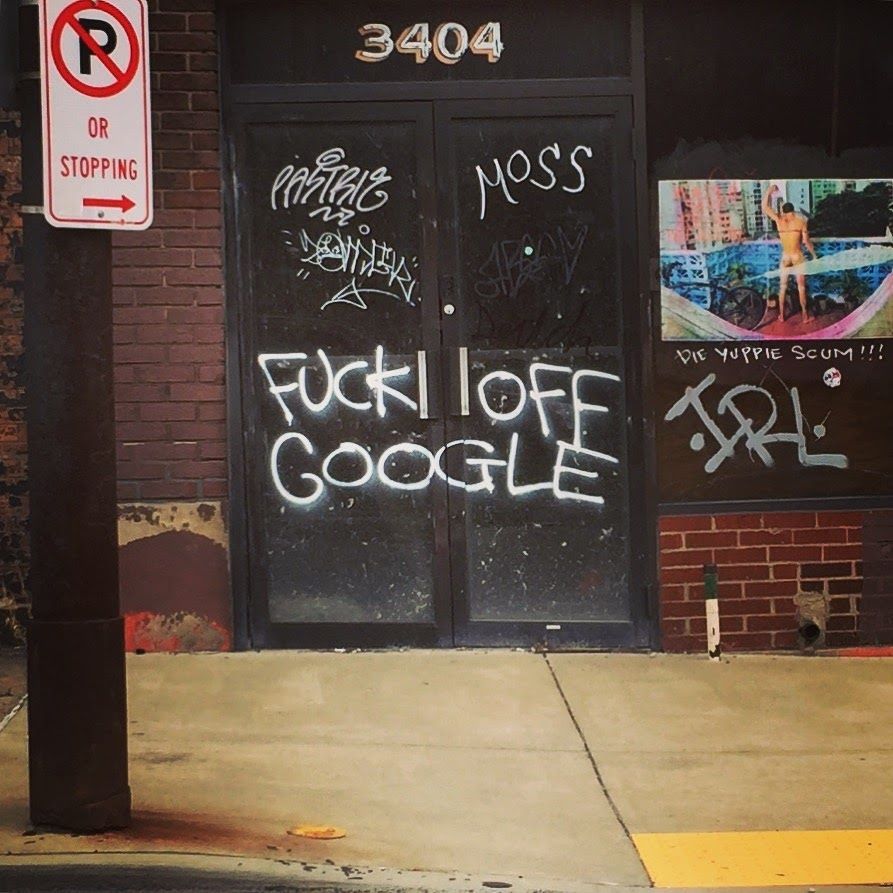 3404
P
OR
STOPPING
PASTRIE
MOSS
FUCK OFF
GOOGLE
DIE YUPPIE SCUM!!!